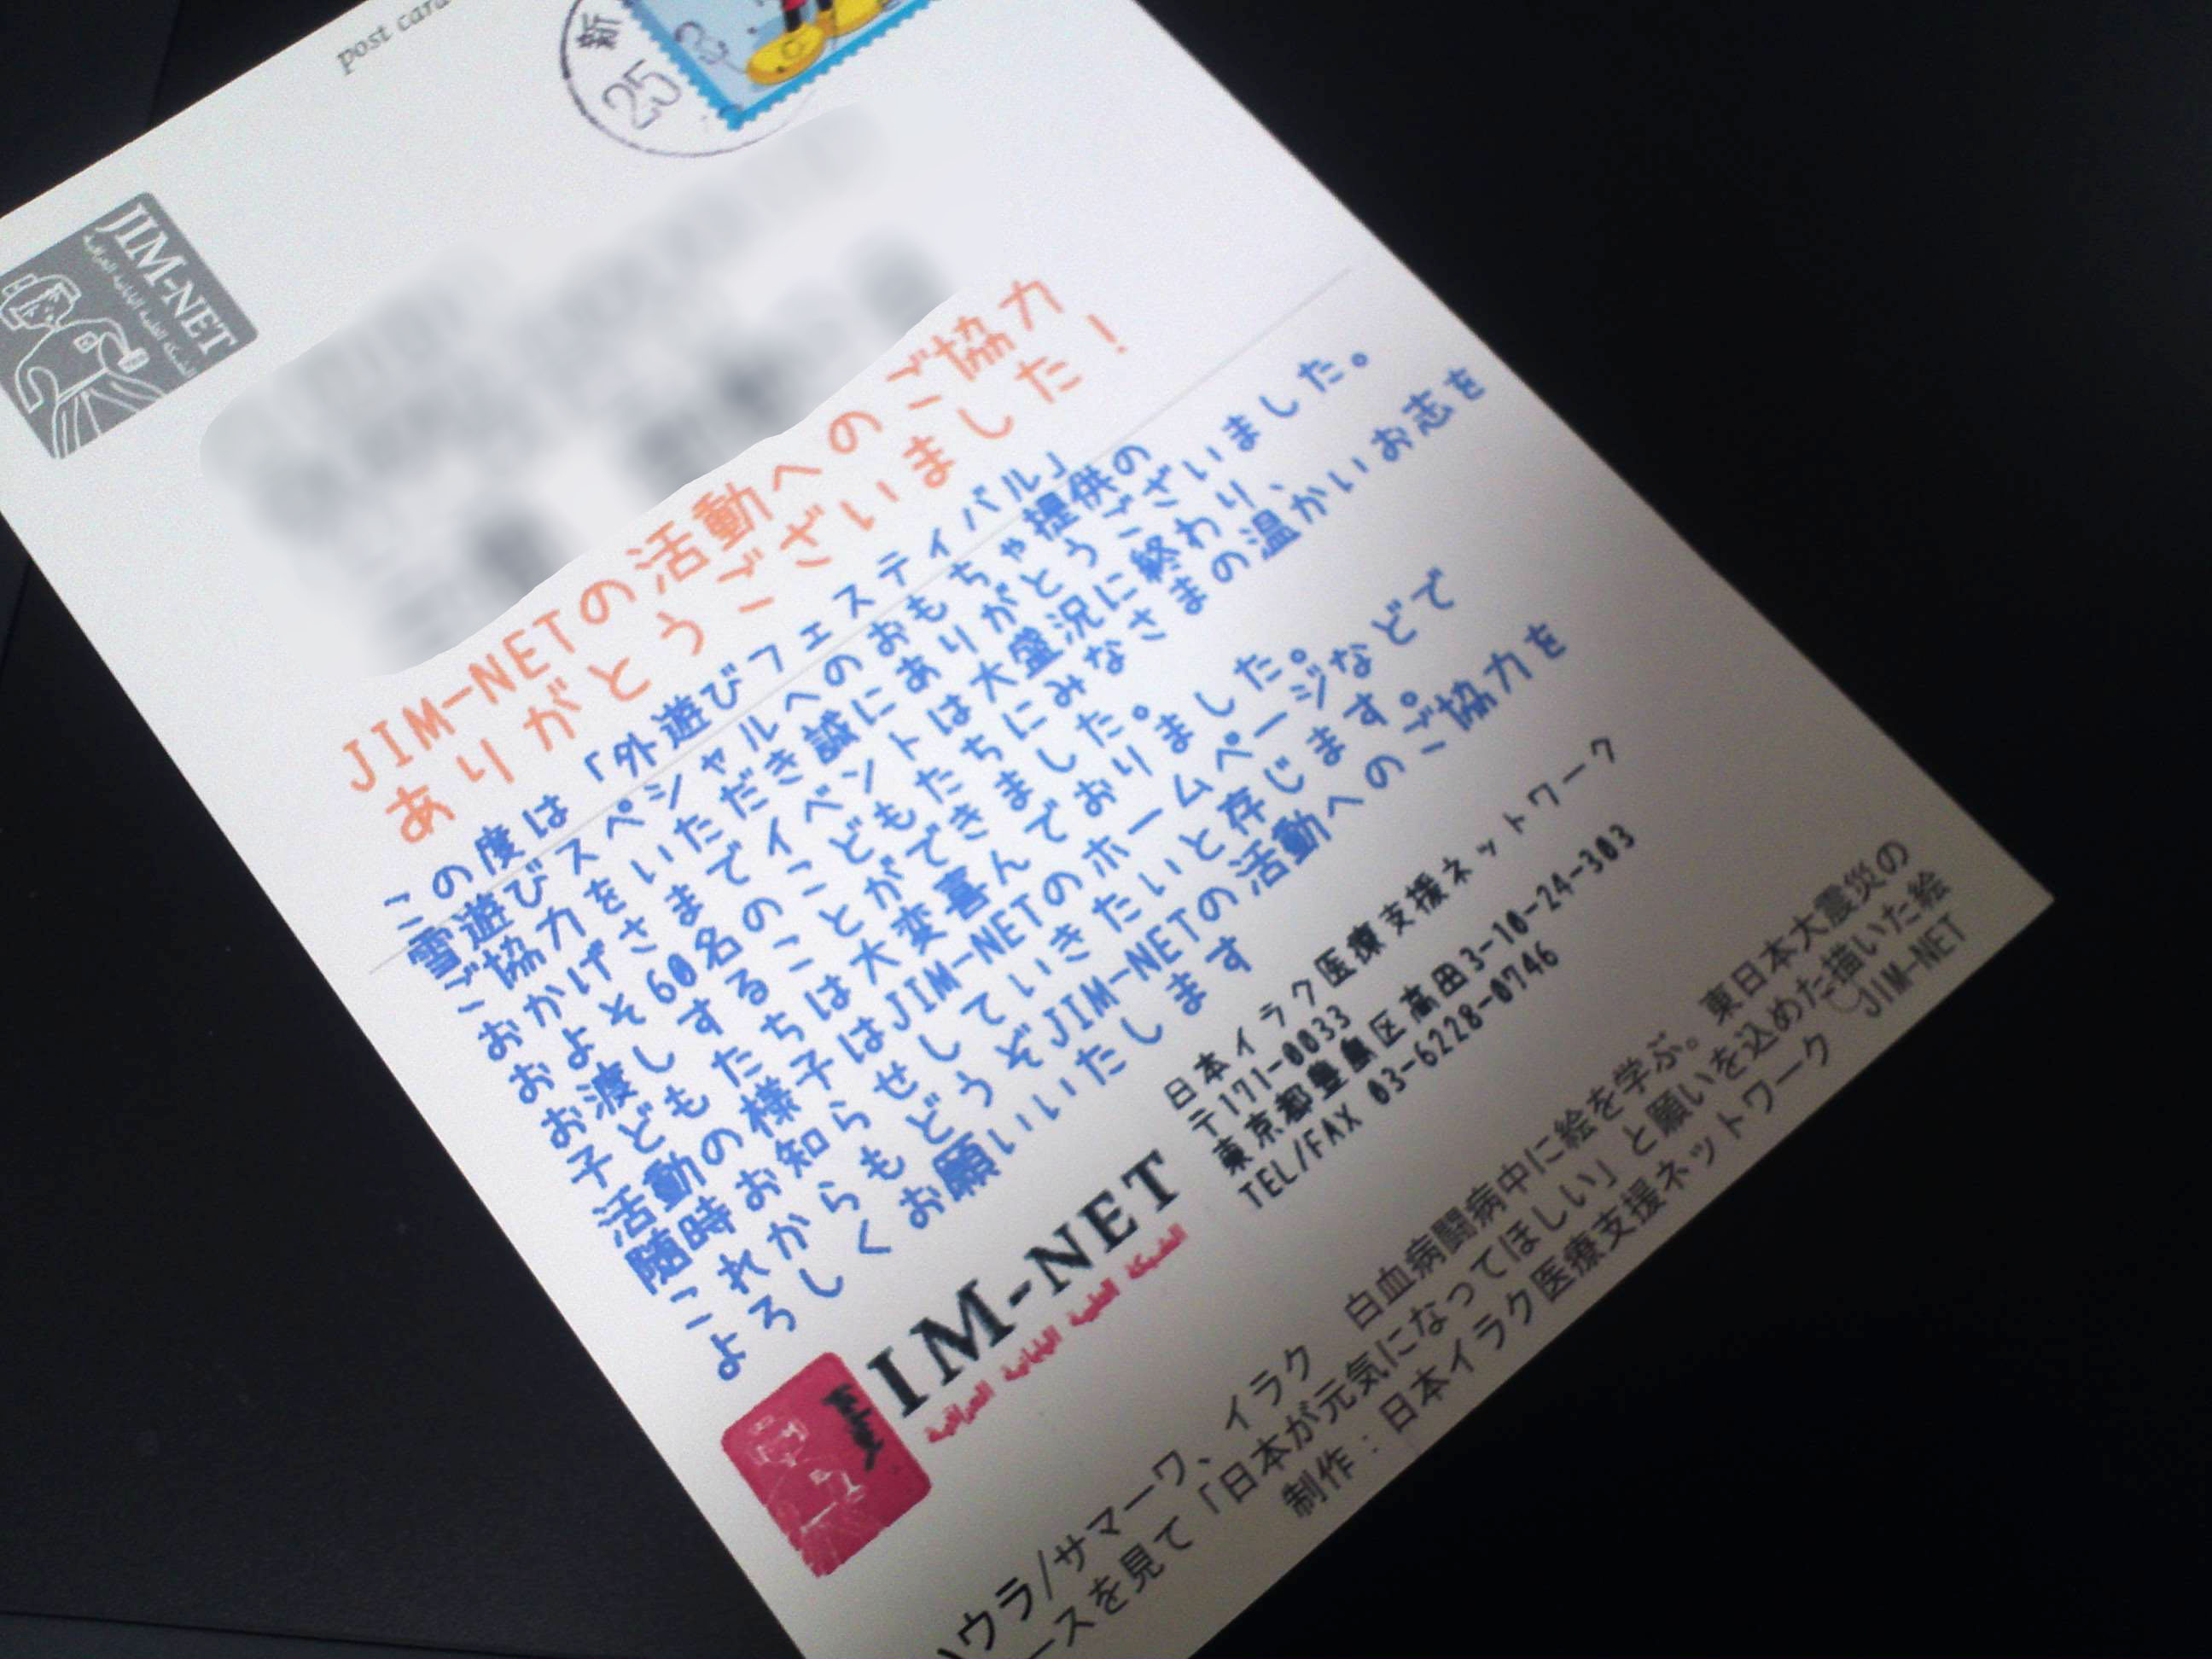 post card
新
25
JIM-NET
الشبكة الطبية اليابانية العراقية
JIM-NETの活動へのご協力
ありがとうございました！
この度は「外遊びフェスティバル」
雪遊びスペシャルへのおもちゃ提供の
ご協力をいただき誠にありがとうございました。
おかげさまでイベントは大盛況に終わり、
およそ60名のこどもたちにみなさまの温かいお志を
お渡しすることができました。
子どもたちは大変喜んでおりました。
活動の様子はJIM-NETのホームページなどで
随時お知らせしていきたいと存じます。
これからもどうぞJIM-NETの活動へのご協力を
よろしくお願いいたします
JIM-NET
الشبكة الطبية اليابانية العراقية
日本イラク医療支援ネットワーク
〒171-0033
東京都豊島区高田3-10-24-303
TEL/FAX 03-6228-0746
ハウラ/サマーワ、イラク　白血病闘病中に絵を学ぶ。東日本大震災の
ースを見て「日本が元気になってほしい」と願いを込めた描いた絵
制作：日本イラク医療支援ネットワーク　JIM-NET